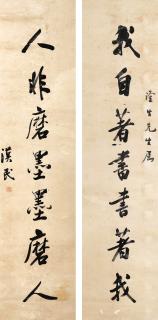 我自著書書著我
蔭生先生屬
人非磨墨墨磨人
漢民